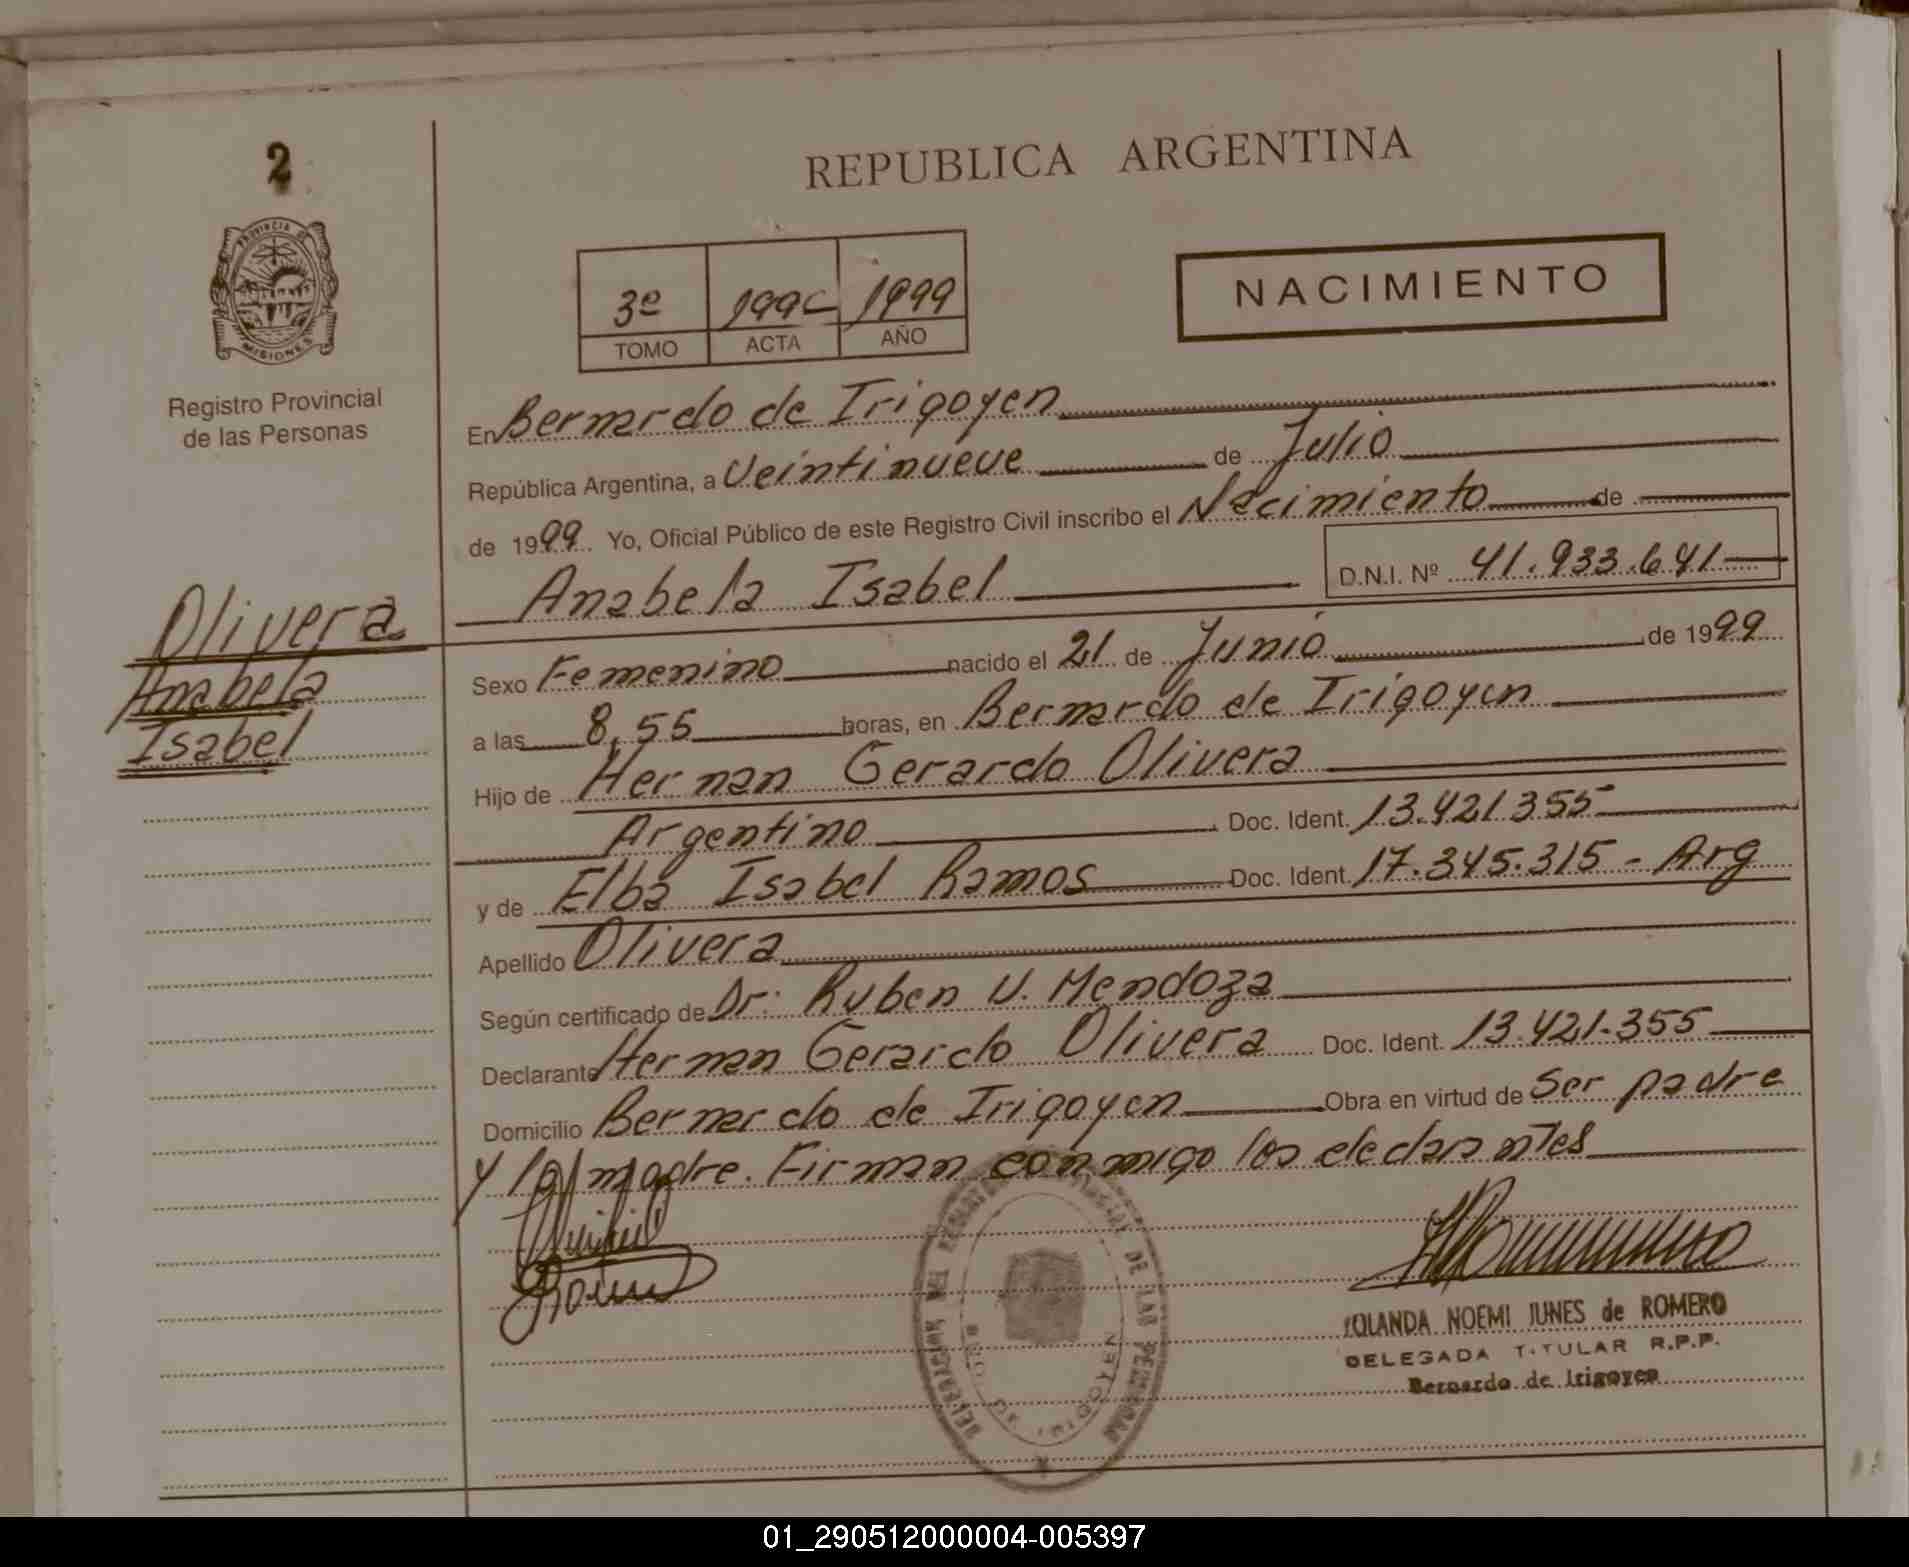 2
PROVINCIA DE
MISIONES
Registro Provincial
de las Personas
Olivera
Anabela
Isabel
REPUBLICA ARGENTINA
3º 1999
TOMO ACTA AÑO
NACIMIENTO
En Bernardo de Irigoyen
República Argentina, a Veintinueve de Julio
de 1999 Yo, Oficial Público de este Registro Civil inscribo el Nacimiento de
Anabela Isabel D.N.I. Nº 41.933.641
Sexo Femenino nacido el 21 de Junio de 1999
a las 8,55 horas, en Bernardo de Irigoyen
Hijo de Hernan Gerardo Olivera
Argentino Doc. Ident. 13.421355
y de Elba Isabel Ramos Doc. Ident. 17.345.315 - Arg
Apellido Olivera
Según certificado de Dr: Ruben V. Mendoza
Declarante Hernan Gerardo Olivera Doc. Ident. 13.421.355
Domicilio Bernardo de Irigoyen Obra en virtud de Ser padre
y la madre. Firman conmigo los declarantes
DE LAS PERSONAS
YOLANDA NOEMI JUNES de ROMERO
DELEGADA TITULAR R.P.P.
Bernardo de Irigoyen
01_290512000004-005397